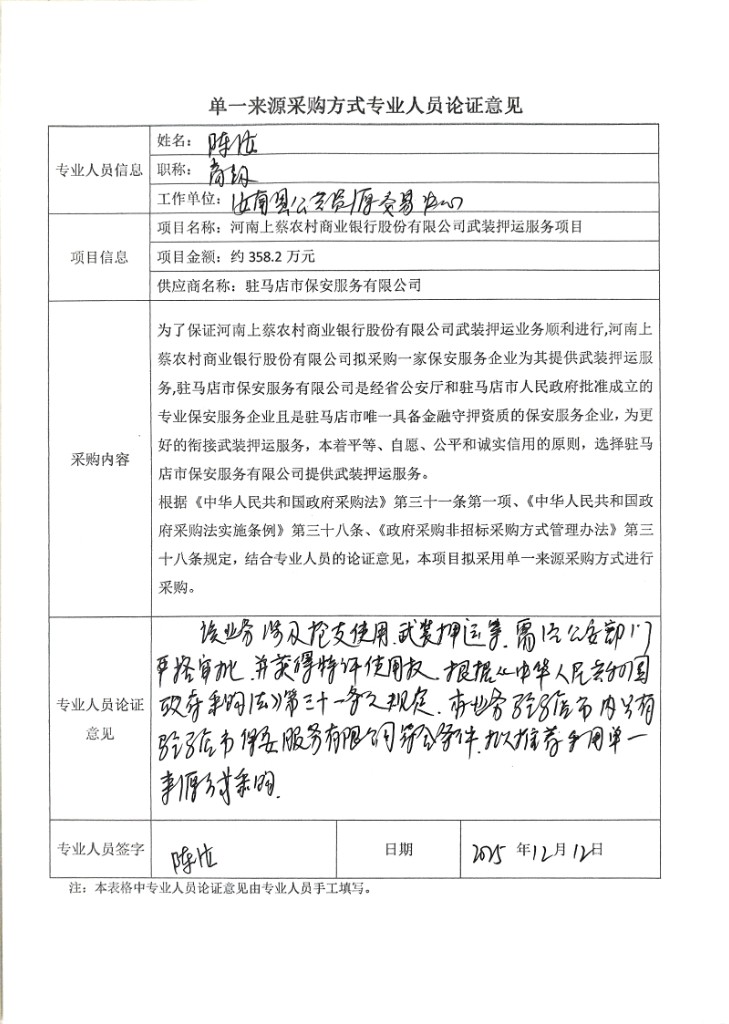 单一来源采购方式专业人员论证意见
专业人员信息
姓名：陈
职称：
工作单位：汝南县公共资源交易中心
项目信息
项目名称：河南上蔡农村商业银行股份有限公司武装押运服务项目
项目金额：约 358.2 万元
供应商名称：驻马店市保安服务有限公司
采购内容
为了保证河南上蔡农村商业银行股份有限公司武装押运业务顺利进行,河南上
蔡农村商业银行股份有限公司拟采购一家保安服务企业为其提供武装押运服
务,驻马店市保安服务有限公司是经省公安厅和驻马店市人民政府批准成立的
专业保安服务企业且是驻马店市唯一具备金融守押资质的保安服务企业，为更
好的衔接武装押运服务，本着平等、自愿、公平和诚实信用的原则，选择驻马
店市保安服务有限公司提供武装押运服务。
根据《中华人民共和国政府采购法》第三十一条第一项、《中华人民共和国政
府采购法实施条例》第三十八条、《政府采购非招标采购方式管理办法》第三
十八条规定，结合专业人员的论证意见，本项目拟采用单一来源采购方式进行
采购。
专业人员论证
意见
该业务涉及枪支使用、武装押运等，需经公安部门
严格审批，并获得特许使用权，根据《中华人民共和国
政府采购法》第三十一条之规定，本业务驻马店市内只有
驻马店市保安服务有限公司符合条件，推荐采用单一
来源方式采购.
专业人员签字
陈
日期
2025 年12月12日
注：本表格中专业人员论证意见由专业人员手工填写。